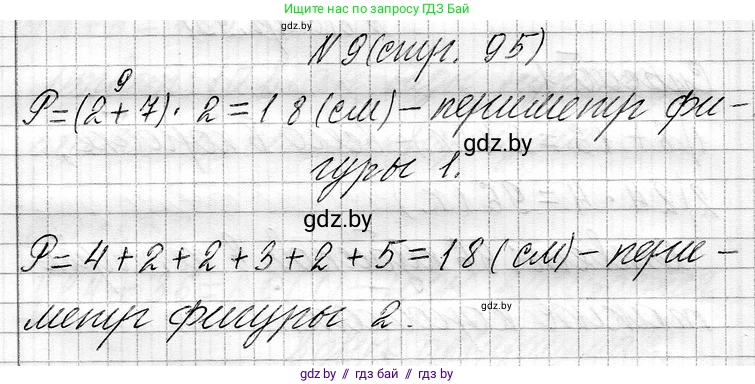 Ищите нас по запросу ГДЗ Бай
gdz.by
N 9 (стр. 95)
9
P = (2 + 7) · 2 = 18 (см) – периметр фи-
gdz.by
гуры 1.
gdz.by
P = 4 + 2 + 2 + 3 + 2 + 5 = 18 (см) – пери-
gdz.by
метр фигуры 2.
gdz.by // гдз бай // gdz.by